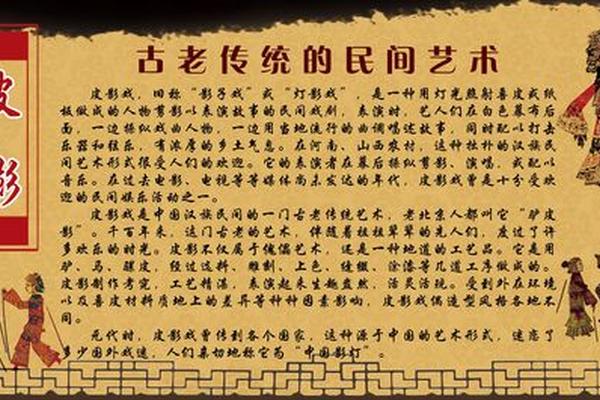 古老传统的民间艺术
皮影
皮影戏，旧称“影子戏”或“灯影戏”，是一种用灯光照射兽皮或纸
板做成的人物剪影以表演故事的民间戏剧，表演时，艺人们在白色幕布后
面，一边操纵戏曲人物，一边用当地流行的曲调唱述故事，同时配以打击
乐器和弦乐，有浓厚的乡土气息。在河南、山西农村，这种拙朴的汉族民
间艺术形式很受人们的欢迎。它的表演者在幕后操纵剪影、演唱，或配以
音乐。在过去电影、电视等等媒体尚未发达的年代，皮影戏曾是十分受欢
迎的民间娱乐活动之一。
皮影戏是中国汉族民间的一门古老传统艺术，老北京人都叫它“驴皮
影”。千百年来，这门古老的艺术，伴随着祖祖辈辈的先人们，度过了许
多欢乐的时光。皮影不仅属于傀儡艺术，还是一种地道的工艺品。它是用
驴、马、骡皮，经过选料、雕刻、上色、缝缀、涂漆等几道工序做成的。
皮影制作考究，工艺精湛，表演起来生趣盎然，活灵活现。受到外在环境
以及兽皮材料质地上的差异等种种因素影响，皮影戏偶造型风格各地不
同。
元代时，皮影戏曾传到各个国家，这种源于中国的艺术形式，迷恋了
多少国外戏迷，人们亲切地称它为“中国影灯”。